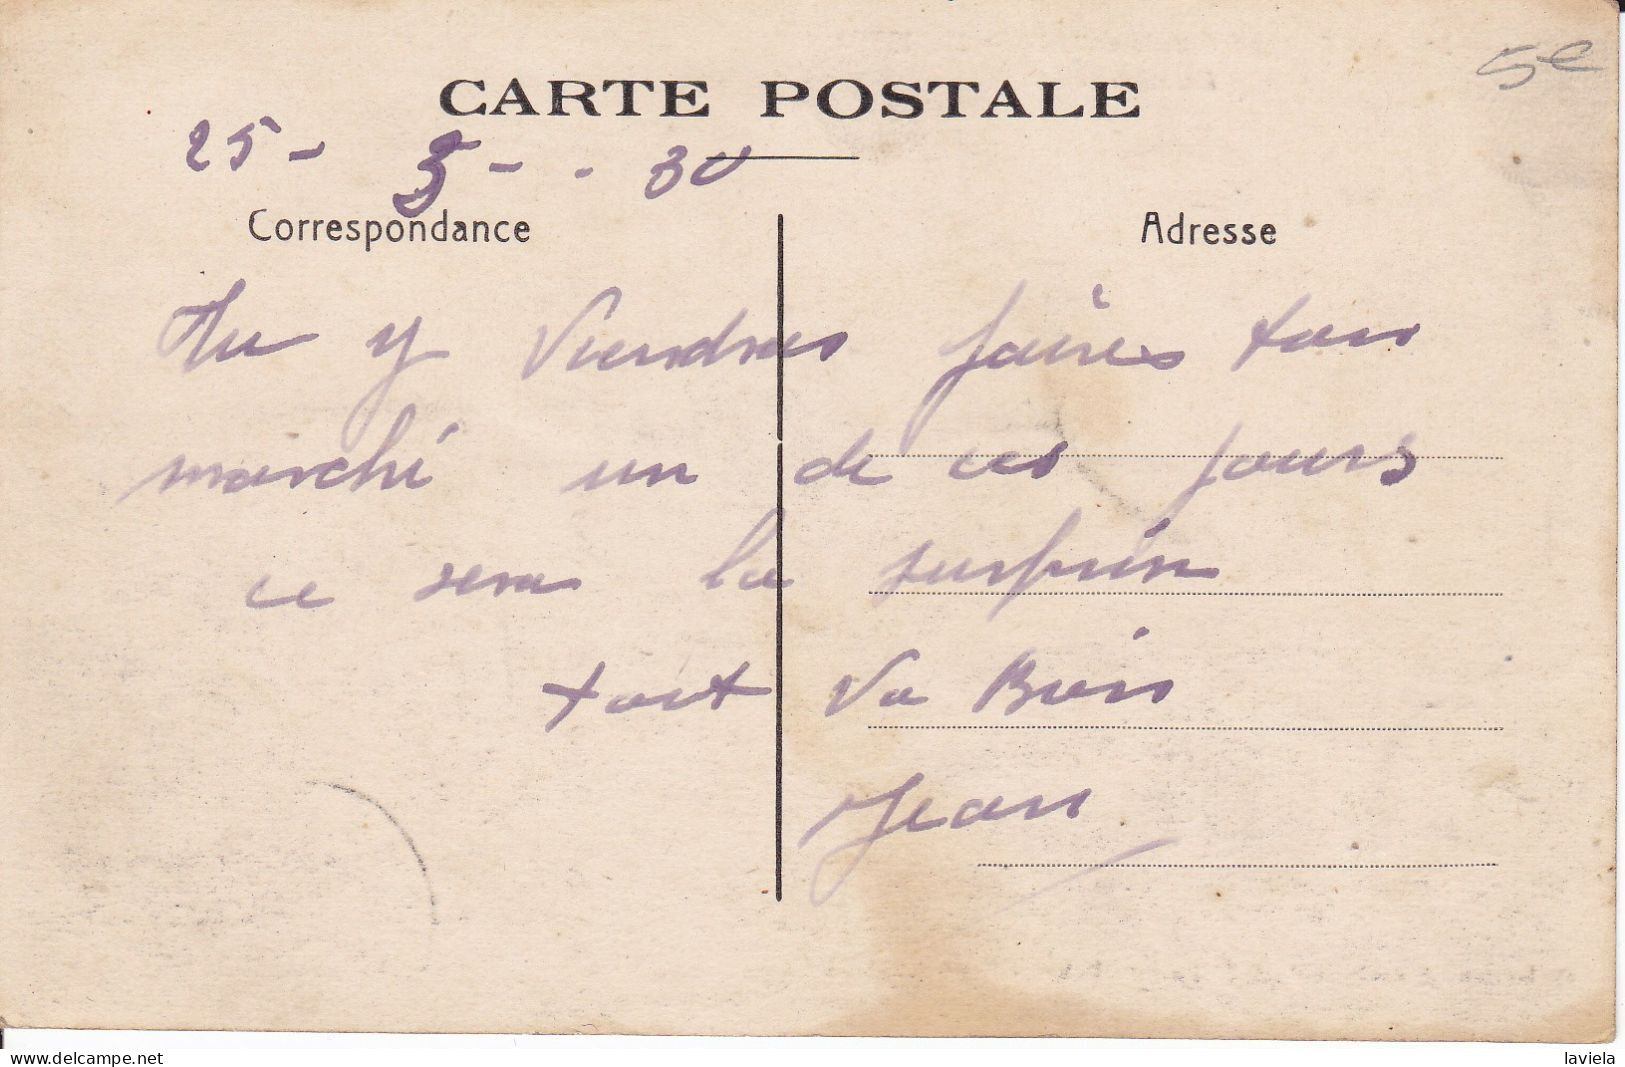 5e
CARTE POSTALE
25 - 5 - - 30
Correspondance
Adresse
Tu y Viendras faires ton
marché un de ces jours
ce sera la surprin
tout va Bien
Jean
www.delcampe.net
laviela